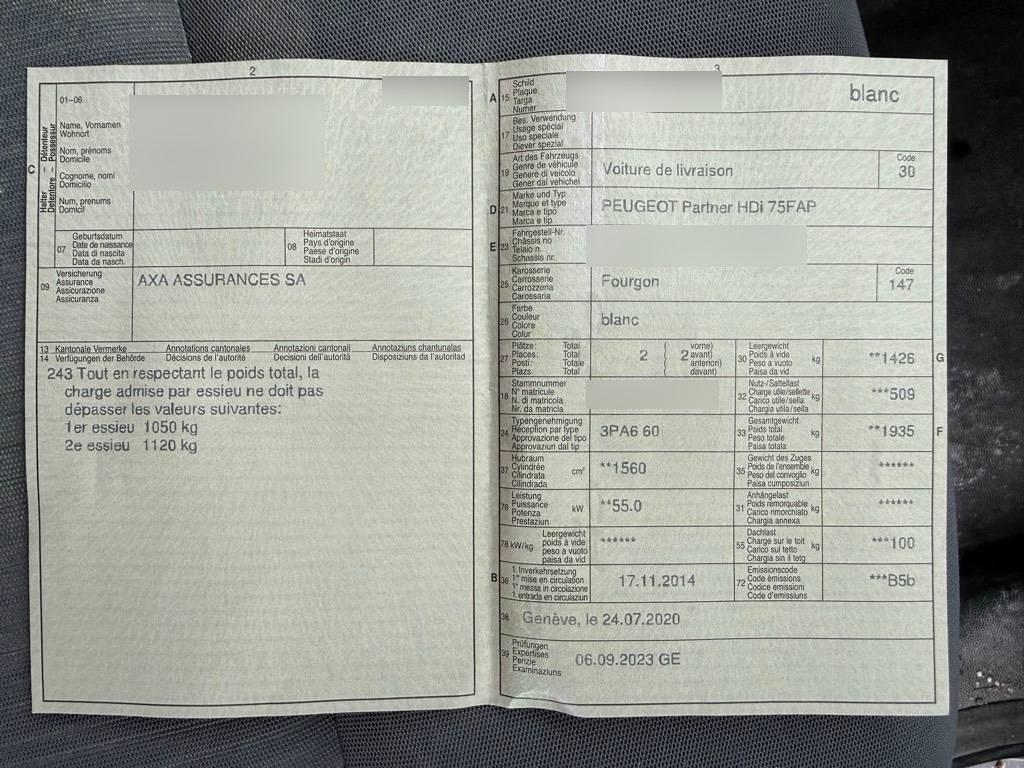 2
01–06
Name, Vornamen
Wohnort
Nom, prénoms
Domicile
Cognome, nomi
Domicilio
Num, prenums
Domicil
C
Halter – Détenteur
Detentore – Possessur
07
Geburtsdatum
Date de naissance
Data di nascita
Data da nasch.
08
Heimatstaat
Pays d'origine
Paese d'origine
Stadi d'origin
09
Versicherung
Assurance
Assicurazione
Assicuranza
AXA ASSURANCES SA
13 Kantonale Vermerke Annotations cantonales Annotazioni cantonali Annotaziuns chantunalas
14 Verfügungen der Behörde Décisions de l'autorité Decisioni dell'autorità Disposiziuns da l'autoritad
243 Tout en respectant le poids total, la
charge admise par essieu ne doit pas
dépasser les valeurs suivantes:
1er essieu 1050 kg
2e essieu 1120 kg
3
A 15
Schild
Plaque
Targa
Numer
blanc
17
Bes. Verwendung
Usage spécial
Uso speciale
Diever spezial
19
Art des Fahrzeugs
Genre de véhicule
Genere di veicolo
Gener dal vehichel
Voiture de livraison
Code
30
D 21
Marke und Typ
Marque et type
Marca e tipo
Marca e tip
PEUGEOT Partner HDi 75FAP
E 23
Fahrgestell-Nr.
Châssis no
Telaio n.
Schassis nr.
25
Karosserie
Carrosserie
Carrozzeria
Carossaria
Fourgon
Code
147
26
Farbe
Couleur
Colore
Colur
blanc
27
Plätze: Total
Places: Total
Posti: Totale
Plazs: Total
2
( vorne)
( 2 avant)
( anteriori)
( davant)
30
Leergewicht
Poids à vide
Peso a vuoto
Paisa da vid
kg
**1426
G
18
Stammnummer
N° matricule
N. di matricola
Nr. da matricla
32
Nutz-/Sattellast
Charge utile/sellette
Carico utile/sella
Chargia utila/sella
kg
***509
24
Typengenehmigung
Réception par type
Approvazione del tipo
Approvaziun dal tip
3PA6 60
33
Gesamtgewicht
Poids total
Peso totale
Paisa totala
kg
**1935
F
37
Hubraum
Cylindrée
Cilindrata
Cilindrada
cm³
**1560
35
Gewicht des Zuges
Poids de l'ensemble
Peso del convoglio
Paisa cumposiziun
kg
******
76
Leistung
Puissance
Potenza
Prestaziun
kW
**55.0
31
Anhängelast
Poids remorquable
Carico rimorchiato
Chargia annexa
kg
******
78 kW/kg
Leergewicht
poids à vide
peso a vuoto
paisa da vid
******
55
Dachlast
Charge sur le toit
Carico sul tetto
Chargia sin il tetg
kg
***100
B 36
1. Inverkehrsetzung
1re mise en circulation
1a messa in circolazione
1. entrada en circulaziun
17.11.2014
72
Emissionscode
Code émissions
Codice emissioni
Code d'emissiuns
***B5b
38
Genève, le 24.07.2020
39
Prüfungen
Expertises
Perizie
Examinaziuns
06.09.2023 GE